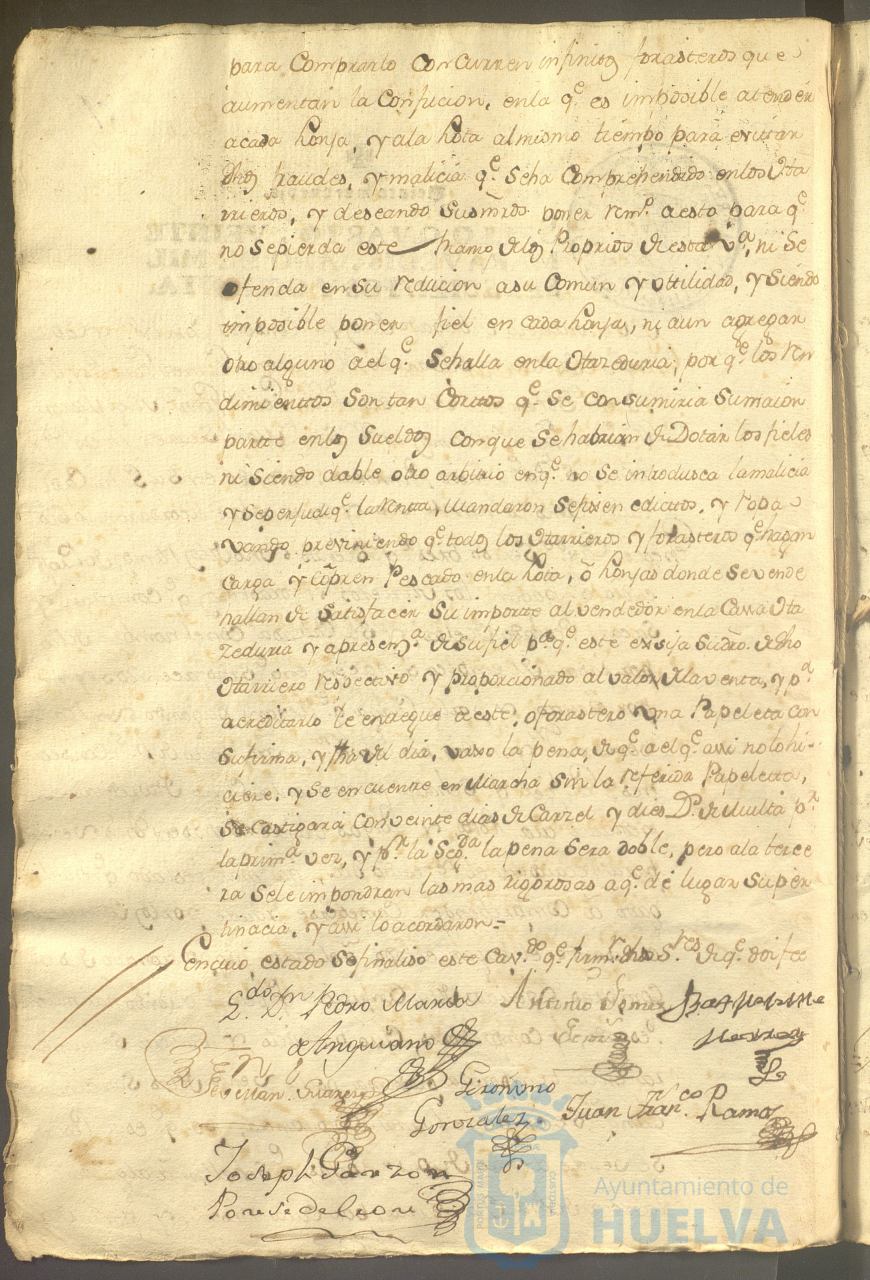 para Comprarlo Concurren infinitos forasteros que
aumentan la Confucion, enla qe. es imposible atender
acada lonja, y ala hota almismo tiempo para evitar
dhos fraudes, y malicia qe. seha Comprehendido enlos Ha
rrieros, y deseando Susmrds. poner Remo. aesto para qe.
no sepierda este Ramo delos Proprios de esta Va., ni Se
ofenda en su reducion asu Comun y vttilidad, y siendo
imposible poner fiel en cada lonja, ni aun agregar
otro alguno ael qe. sehalla enla Hazeduria, por qe. los Ren
dimienttos Son tan Corttos qe. se consumiria Sumaior
partte enlos Sueldos conque Sehabrian de Dotar los fieles
ni Siendo dable otro arbitrio en qe. no se introdusca lamalicia
y Seperjudiqe. la Rentta, Mandaron Sefixen edicttos, y
vando, previniendo qe. todos los Harrieros y forasteros qe. hagan
Carga y Compren Pescado enla hota, ô lonjas donde Sevende
hallan de Satisfacer Su importte al vendedor enla Cassa Ha
zeduria y apresena. de su fiel pa. qe. este exsija Sudro. de dho
Harriero respectivo y proporcionado al valor dela venta, y pa.
acreditarlo le entregue a este, o forastero una Papeleta con
Sufirma, y fha del dia, vaxo la pena, de qe. a el qe. assi nolo hi-
ciere, y se encuentre en Marcha sin la referida Papeletta,
Se castigará con veinte dias de Carzel y dies Ds. de Multa pr.
laprima. vez, y pr. la Segda. la pena sera doble, pero ala terce
ra sele impondran las mas rigorosas aqe. dé lugar Super
tinacia, y assi lo acordaron.=
En cuio estado Sefinaliso este Cavdo. qe. firmn. dhos Sres. de qe. doi fee
Ldo. Dn. Pedro Martin
de Anguiano
Antonio
Geronimo
Gonzalez
Juan Franco. Ramos
Joseph Garzon
Ponse de Leon
Ayuntamiento de
HUELVA